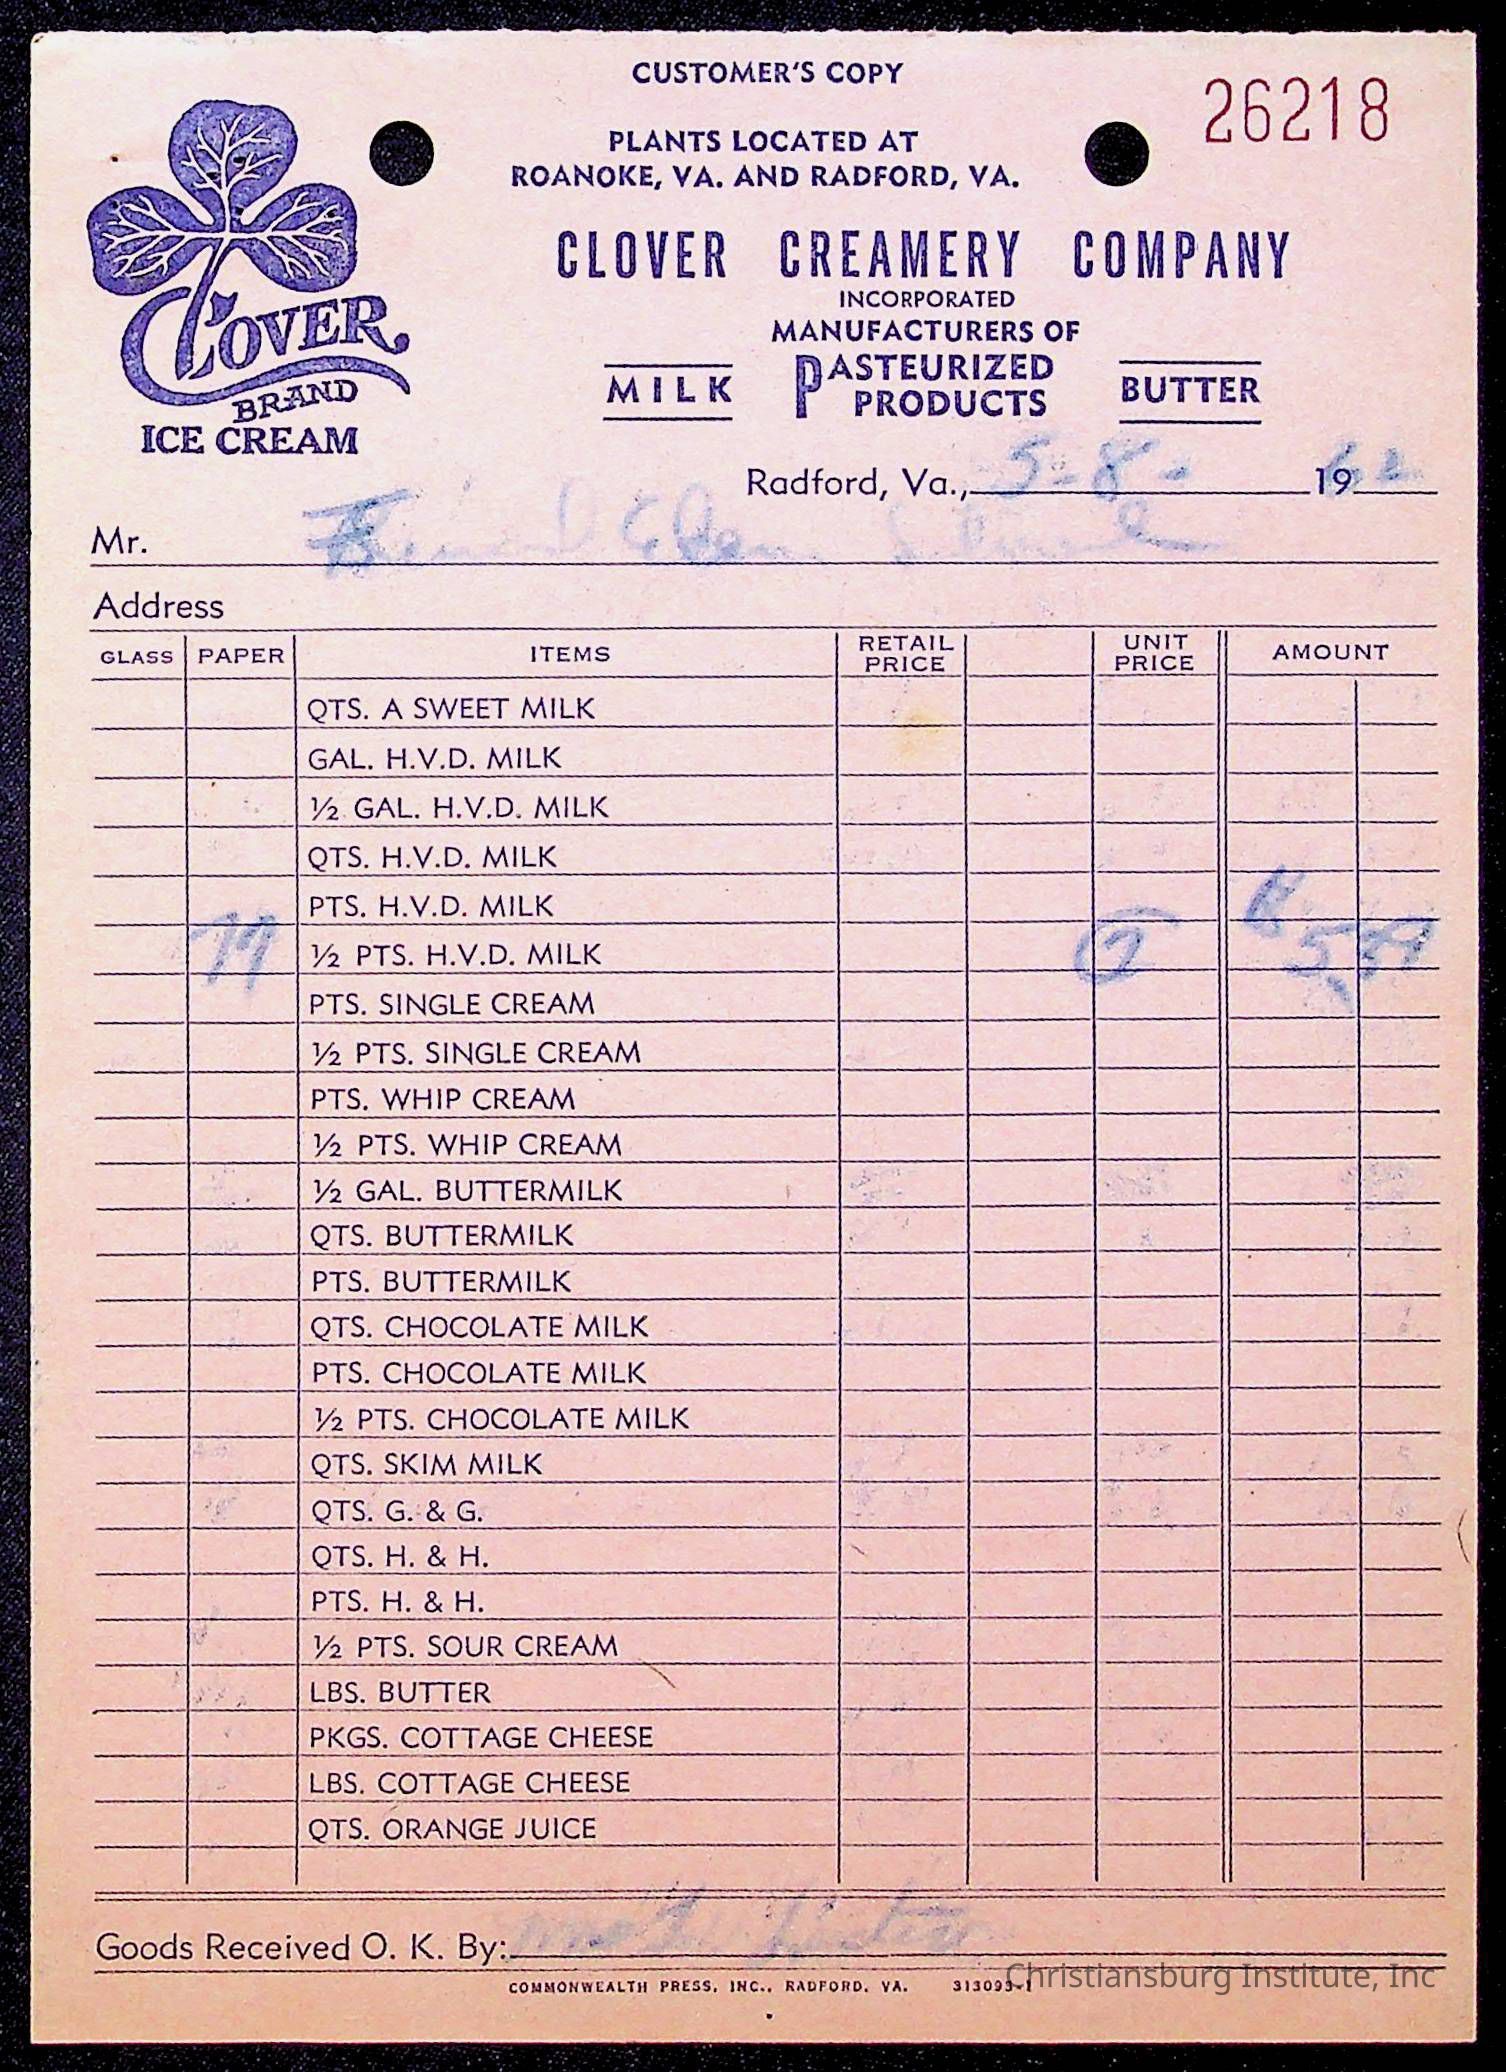 CUSTOMER'S COPY
26218
PLANTS LOCATED AT
ROANOKE, VA. AND RADFORD, VA.
CLOVER CREAMERY COMPANY
INCORPORATED
MANUFACTURERS OF
MILK PASTEURIZED PRODUCTS BUTTER
CLOVER
BRAND
ICE CREAM
Radford, Va., 5-8- 1962
Mr.
Address
GLASS PAPER ITEMS RETAIL PRICE UNIT PRICE AMOUNT
QTS. A SWEET MILK
GAL. H.V.D. MILK
½ GAL. H.V.D. MILK
QTS. H.V.D. MILK
PTS. H.V.D. MILK
77 ½ PTS. H.V.D. MILK 7 5 39
PTS. SINGLE CREAM
½ PTS. SINGLE CREAM
PTS. WHIP CREAM
½ PTS. WHIP CREAM
½ GAL. BUTTERMILK
QTS. BUTTERMILK
PTS. BUTTERMILK
QTS. CHOCOLATE MILK
PTS. CHOCOLATE MILK
½ PTS. CHOCOLATE MILK
QTS. SKIM MILK
QTS. G. & G.
QTS. H. & H.
PTS. H. & H.
½ PTS. SOUR CREAM
LBS. BUTTER
PKGS. COTTAGE CHEESE
LBS. COTTAGE CHEESE
QTS. ORANGE JUICE
Goods Received O. K. By:
COMMONWEALTH PRESS, INC., RADFORD, VA. 313093-1
Christiansburg Institute, Inc